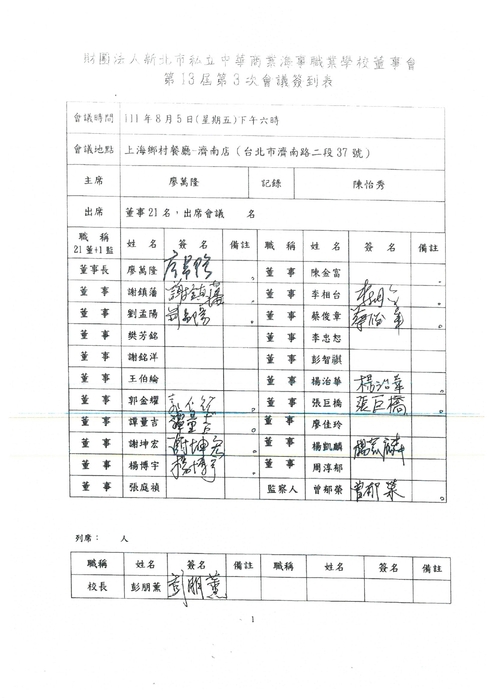 財團法人新北市私立中華商業海事職業學校董事會
第13屆第3次會議簽到表
會議時間 111年8月5日(星期五)下午六時
會議地點 上海鄉村餐廳-濟南店(台北市濟南路二段37號)
主席 廖萬隆 記錄 陳怡秀
出席 董事21名,出席會議 名
職稱 21董+1監 姓名 簽名 備註 職稱 姓名 簽名 備註
董事長 廖萬隆 董事 陳金富
董事 謝鎮藩 謝鎮藩 董事 李相台 李相台
董事 劉孟陽 董事 蔡俊章 蔡俊章
董事 樊芳銘 董事 李忠恕
董事 謝銘洋 董事 彭智祺
董事 王伯綸 董事 楊治華 楊治華
董事 郭金耀 董事 張巨橋 張巨橋
董事 譚量吉 譚量吉 董事 廖佳玲
董事 謝坤宏 謝坤宏 董事 楊凱麟
董事 楊博宇 楊博宇 董事 周淳郁
董事 張庭禎 監察人 曾郁榮 曾郁榮
列席: 人
職稱 姓名 簽名 備註 職稱 姓名 簽名 備註
校長 彭朋薰 彭朋薰
1